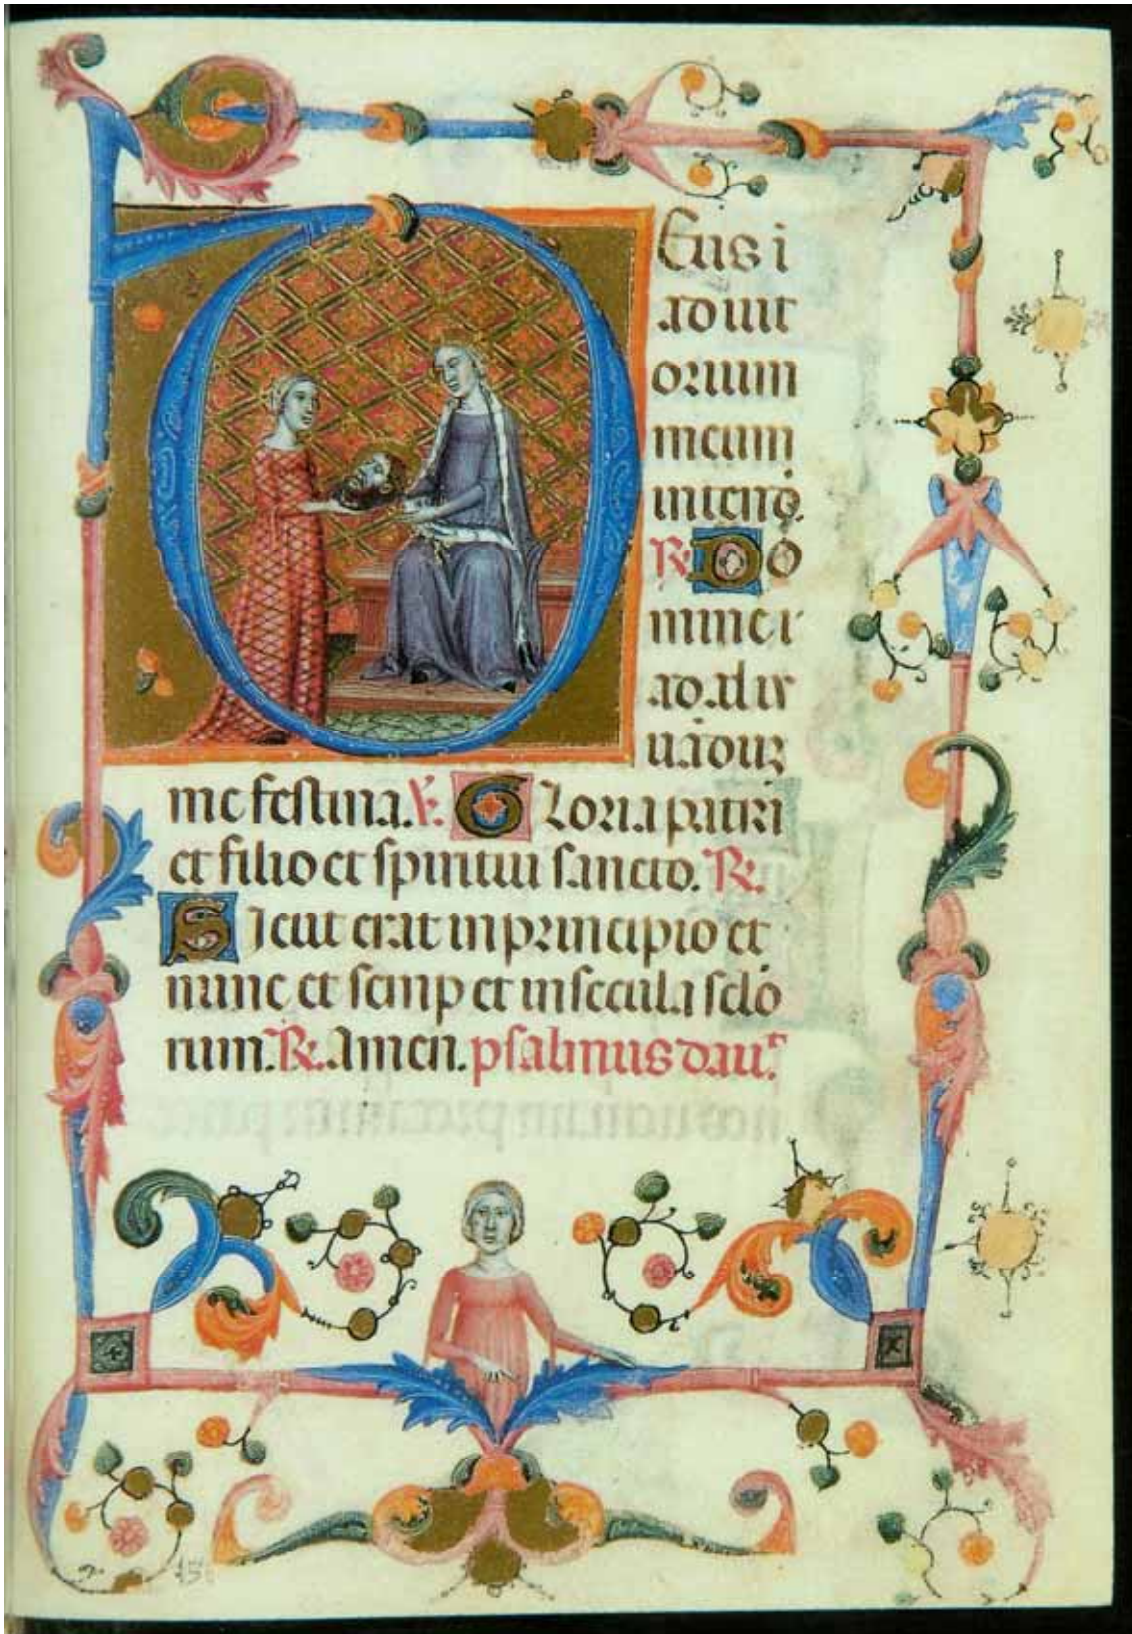 DEus i
adiut
orium
meum
intende.
R. Do
mine i
ad adiu
uāduȝ
me festina. V. Gloria patri
et filio et spiritui sancto. R.
Sicut erat in principio et
nunc et semp et in secula sclo
rum. R. Amen. psalmus dauit